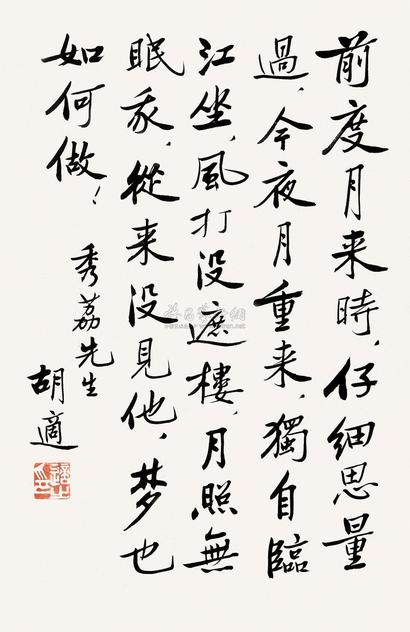 前度月来時,仔細思量
過,今夜月重来,獨自臨
江坐,風打没遮樓,月照無
眠我,從来没見他,梦也
如何做!
秀荔先生
胡適